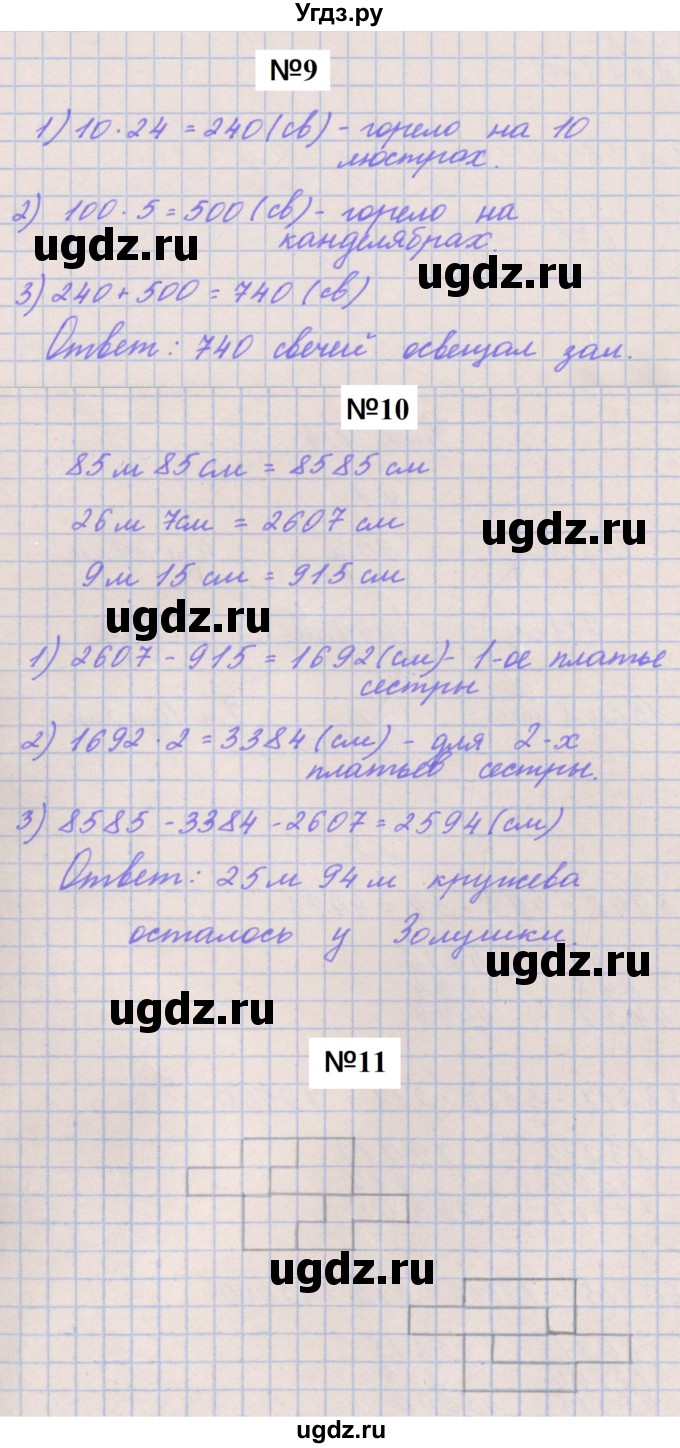 Угдз.ру
№9
1) 10 · 24 = 240 (св) - горело на 10
люстрах.
2) 100 · 5 = 500 (св) - горело на
канделябрах.
ugdz.ru
ugdz.ru
3) 240 + 500 = 740 (св)
Ответ: 740 свечей освещал зал.
№10
85 м 85 см = 8585 см
26 м 7 см = 2607 см
ugdz.ru
9 м 15 см = 915 см
ugdz.ru
1) 2607 - 915 = 1692 (см) - 1-ое платье
сестры
2) 1692 · 2 = 3384 (см) - для 2-х
платьев сестры.
3) 8585 - 3384 - 2607 = 2594 (см)
Ответ: 25 м 94 м кружева
осталось у Золушки.
ugdz.ru
ugdz.ru
№11
ugdz.ru
ugdz.ru